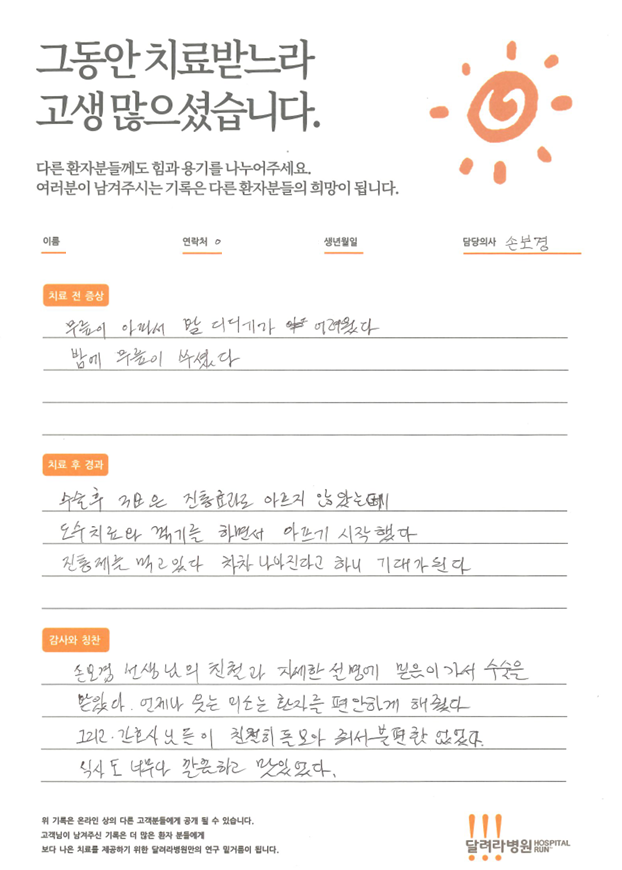 그동안 치료받느라
고생 많으셨습니다.
다른 환자분들께도 힘과 용기를 나누어주세요.
여러분이 남겨주시는 기록은 다른 환자분들의 희망이 됩니다.
이름 연락처 생년월일 담당의사 손보경
치료 전 증상
무릎이 아파서 발 디디기가 어려웠다
밤에 무릎이 쑤셨다
치료 후 경과
수술후 3일은 진통효과로 아프지 않았는데
도수치료와 꺾기를 하면서 아프기 시작했다
진통제를 먹고있다 차차 나아진다고 하니 기대가 된다
감사와 칭찬
손보경 선생님의 친절과 자세한 설명에 믿음이 가서 수술을
받았다. 언제나 웃는 미소는 환자를 편안하게 해줬다
그리고 간호사님들이 친절히 돌보아 줘서 불편함 없었다.
식사도 너무나 깔끔하고 맛있었다.
위 기록은 온라인 상의 다른 고객분들에게 공개 될 수 있습니다.
고객님이 남겨주신 기록은 더 많은 환자 분들에게
보다 나은 치료를 제공하기 위한 달려라병원만의 연구 밑거름이 됩니다.
달려라병원 HOSPITAL RUN